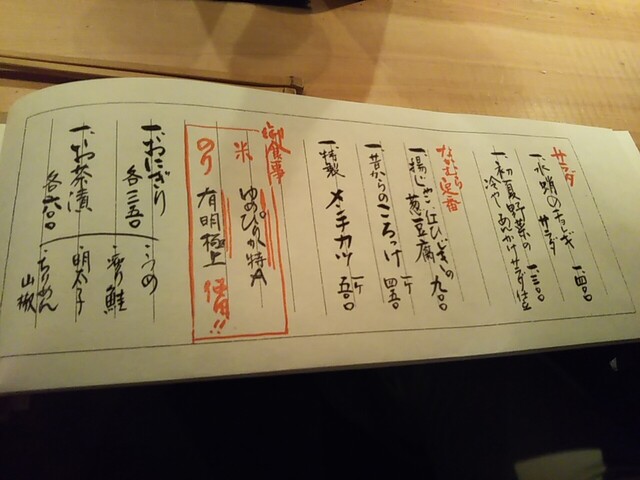 サラダ
一、水蛸のチョレギサラダ 一、四〇〇
一、初夏野菜の冷やしあんかけサラダ仕立 一、三〇〇
ないむら定番
一、揚じゃこ・紅ひじきの葱豆腐 九〇〇
一、昔からのころっけ 一ケ 四五〇
一、特製 メンチカツ 一ケ 五〇〇
御食事
米 ゆめぴりか特A
のり 有明極上 使用!!
一、おにぎり 各三五〇
一、お茶漬 各六〇〇
うめ
焼鮭
明太子
ちりめん山椒